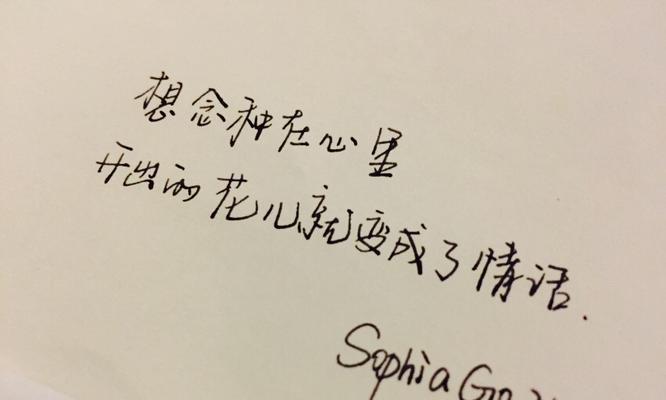 想念种在心里
开出的花儿就变成了情话.
Sophia